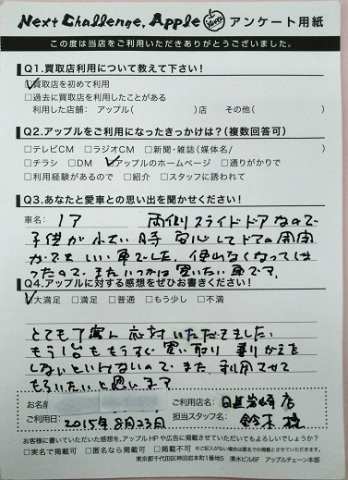 Next Challenge, Apple アンケート用紙
この度は当店をご利用いただきありがとうございました。
Q1.買取店利用について教えて下さい!
☑買取店を初めて利用
□過去に買取店を利用したことがある
利用した店舗: アップル( )店 その他( )
Q2.アップルをご利用になったきっかけは?(複数回答可)
□テレビCM □ラジオCM □新聞・雑誌(媒体名/ )
□チラシ □DM ☑アップルのホームページ □通りがかりで
□利用経験があるので □紹介 □スタッフに誘われて
Q3.あなたと愛車との思い出を聞かせください!
車名: 両側スライドドアなので
子供が小さい時 安心してドアの開閉
いい車でした。使わなくなってしま
ったので またいつか 買いたい車です。
Q4.アップルに対する感想をぜひお書きください!
☑大満足 □満足 □普通 □もう少し □不満
とても 応対いただきました。
もう1台ももうすぐ買い取り 乗りかえを
しないといけないので また、利用させて
もらいたいと思います
お名前 ご利用店名:
ご利用日: 2015年8月23日 担当スタッフ名: 鈴木
お客様に書いていただいた感想を、アップルHPや広告に掲載させていただいてもよろしいでしょうか?
□実名で掲載可 □匿名なら掲載可 □掲載不可
東京都千代田区神田岩本町1番地5 清水ビル6F アップルチェーン本部